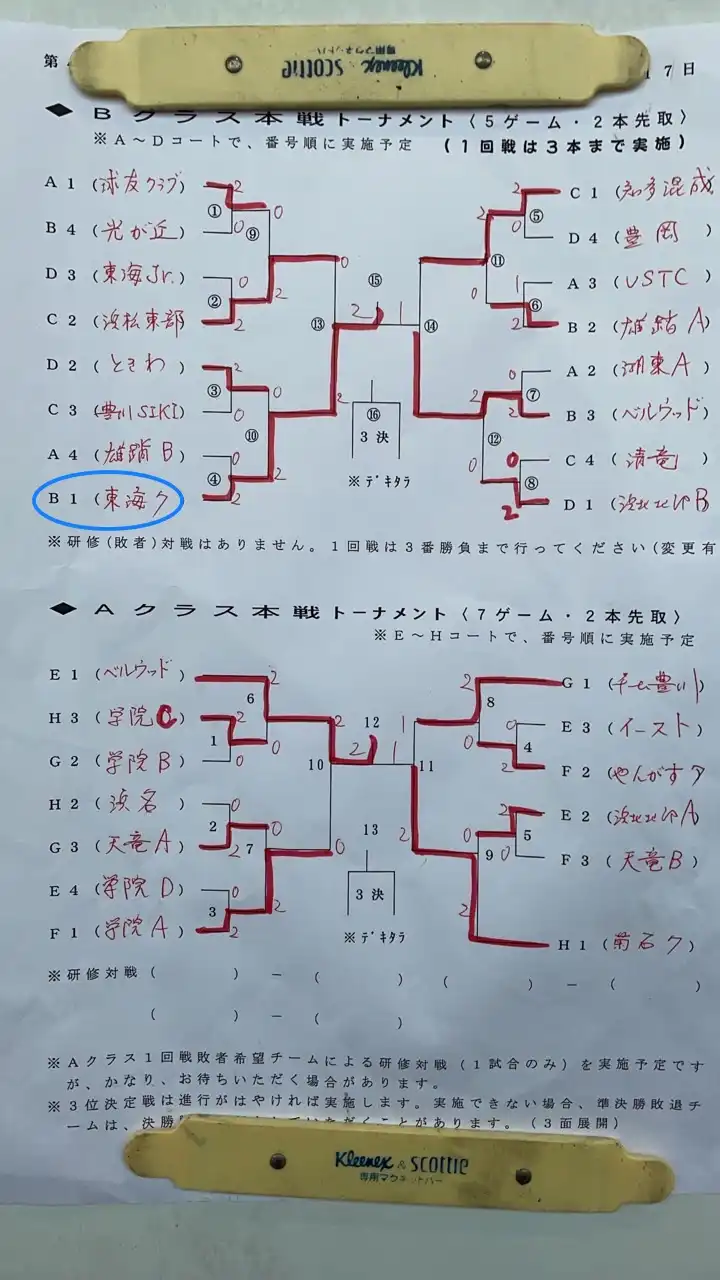 第
17日
Kleenex SCOTTIE
専用マグネットバー
◆Bクラス本戦トーナメント〈5ゲーム・2本先取〉
※A～Dコートで、番号順に実施予定 (1回戦は3本まで実施)
A1(球友クラブ) 2 ① 0 ⑨ 2 ⑤ C1(知多混成
B4(光が丘) 0 2 0 D4(豊岡)
D3(東海Jr.) 0 ② 2 0 ⑮ ⑪ 0 1 ⑥ A3(USTC)
C2(浜松東部 2 ⑬ 2 1 ⑭ 2 B2(雄踏A)
D2(ときわ) 2 ③ 0 0 ⑦ A2(湖東A)
C3(豊川SIKI) 0 ⑩ 2 ⑯ 2 2 B3(ベルウッド)
A4(雄踏B) 0 ④ 2 3決 ⑫ 0 0 ⑧ C4(清竜)
B1(東海ク 2 ※デキタラ 2 D1(浜北北部B
※研修(敗者)対戦はありません。1回戦は3番勝負まで行ってください(変更有
◆Aクラス本戦トーナメント〈7ゲーム・2本先取〉
※E～Hコートで、番号順に実施予定
E1(ベルウッド) 6 2 2 8 G1(チーム豊川)
H3(学院C) 2 1 0 2 12 1 0 4 E3(イースト)
G2(学院B) 0 10 2 1 11 0 2 F2(やんがすク
H2(浜名) 0 2 7 0 13 2 9 0 2 5 E2(浜北北部A)
G3(天竜A) 2 0 0 F3(天竜B)
E4(学院D) 0 3 2 3決 2
F1(学院A) 2 ※デキタラ H1(菊石ク)
※研修対戦( ) － ( ) ( ) － ( )
( ) － ( )
※Aクラス1回戦敗者希望チームによる研修対戦(1試合のみ)を実施予定です
が、かなり、お待ちいただく場合があります。
※3位決定戦は進行がはやければ実施します。実施できない場合、準決勝敗退チ
ームは、決勝 ことがあります。(3面展開)
Kleenex & SCOTTIE
専用マグネットバー